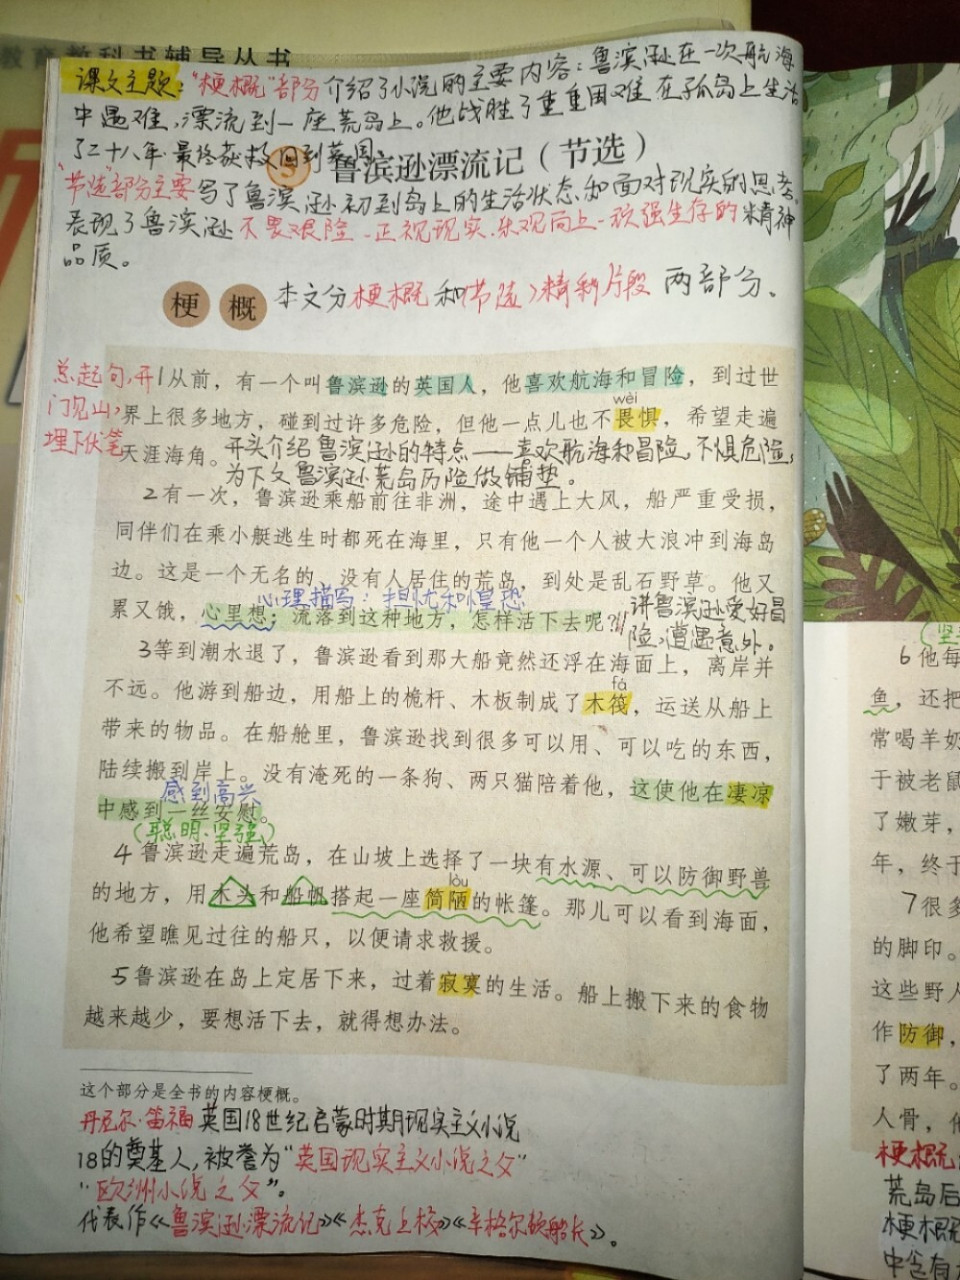 教育教科书辅导丛书
课文主题："梗概"部分介绍了小说的主要内容：鲁滨逊在一次航海
中遇难，漂流到一座荒岛上。他战胜了重重困难在孤岛上生活
了二十八年.最终获救回到英国。
5 鲁滨逊漂流记（节选）
"节选"部分主要写了鲁滨逊初到岛上的生活状态,和面对现实的思考,
表现了鲁滨逊不畏艰险、正视现实、乐观向上、顽强生存的精神
品质。
梗 概 本文分梗概和(节选)精彩片段 两部分、
总起句,开
门见山,
埋下伏笔
1从前，有一个叫鲁滨逊的英国人，他喜欢航海和冒险，到过世
wèi
界上很多地方，碰到过许多危险，但他一点儿也不畏惧，希望走遍
天涯海角。开头介绍鲁滨逊的特点——喜欢航海和冒险,不惧危险,
为下文鲁滨逊荒岛历险做铺垫。
2有一次，鲁滨逊乘船前往非洲，途中遇上大风，船严重受损，
同伴们在乘小艇逃生时都死在海里，只有他一个人被大浪冲到海岛
边。这是一个无名的、没有人居住的荒岛，到处是乱石野草。他又
心理描写：担忧和惶恐
累又饿，心里想：流落到这种地方，怎样活下去呢？
讲鲁滨逊爱好冒
险,遭遇意外。
3等到潮水退了，鲁滨逊看到那大船竟然还浮在海面上，离岸并
fá
不远。他游到船边，用船上的桅杆、木板制成了木筏，运送从船上
带来的物品。在船舱里，鲁滨逊找到很多可以用、可以吃的东西，
陆续搬到岸上。没有淹死的一条狗、两只猫陪着他，这使他在凄凉
感到高兴
中感到一丝安慰。
(聪明、坚强)
4鲁滨逊走遍荒岛，在山坡上选择了一块有水源、可以防御野兽
lòu
的地方，用木头和船帆搭起一座简陋的帐篷。那儿可以看到海面，
他希望瞧见过往的船只，以便请求救援。
5鲁滨逊在岛上定居下来，过着寂寞的生活。船上搬下来的食物
越来越少，要想活下去，就得想办法。
这个部分是全书的内容梗概。
丹尼尔·笛福英国18世纪启蒙时期现实主义小说
18的奠基人,被誉为"英国现实主义小说之父"
"欧洲小说之父"。
代表作《鲁滨逊漂流记》《杰克上校》《辛格尔顿船长》。
6他每
鱼，还把
常喝羊奶
于被老鼠
了嫩芽，
年，终于
7很多
的脚印。
这些野人
作防御，
了两年。
人骨，他
梗概
荒岛后
梗概
中含有